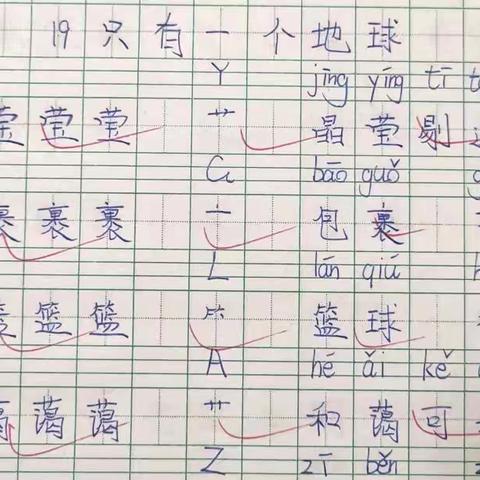 19 只有一个地球
Y jīng yīng tī
莹 莹 莹 艹 晶莹剔
G bāo guǒ
裹 裹 裹 亠 包裹
L lán qiú
篮 篮 篮 ⺮ 篮球
A hé ǎi kě
蔼 蔼 蔼 艹 和蔼可
Z zī běn